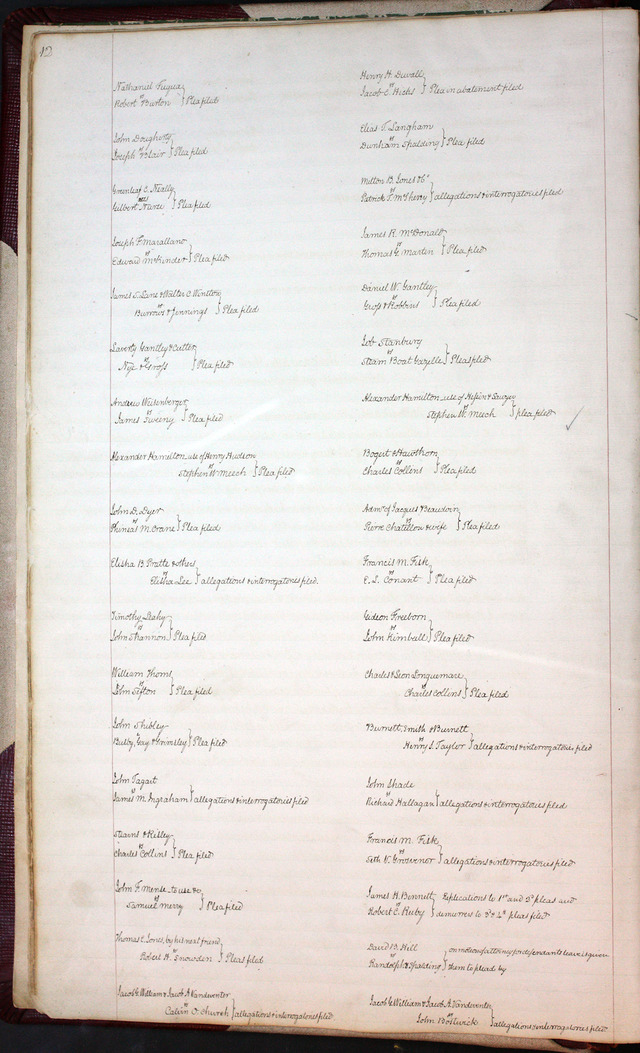 12
Nathaniel Fuqua
vs
Robert Burton } Plea filed
John Dougherty
vs
Joseph Blair } Plea filed
Greenleaf C. Neally
vs
Gilbert } Plea filed
Joseph F.
vs
Edward } Plea filed
James S. Lane & Walter C. Winston
vs
Burrows & Jennings } Plea filed
Laverty Gantley & Cutter
vs
Nye & Gross } Plea filed
Andrew Weisenberger
vs
James Sweeny } Plea filed
Alexander Hamilton use of Henry Hudson
vs
Stephen W. Meech } Plea filed
John D. Dyer
vs
Phineas M. Crane } Plea filed
Elisha B. Pratte & others
vs
Elisha Lee } allegations & interrogatories filed.
Timothy Leahy
vs
John Shannon } Plea filed
William Thoms
vs
John Sefton } Plea filed
John Shibley
vs
Bulby, Gay & Grimsley } Plea filed
John Tagart
vs
James M. Ingraham } allegations & interrogatories filed
Stearns & Risley
vs
Charles Collins } Plea filed
John F. Mense to use &c
vs
Samuel Merry } Plea filed
Thomas C. Jones, by his next friend
vs
Robert H. Snowden } Pleas filed
Jacob G. William & Jacob A. Vandeventer
vs
Calvin O. Church } allegations & interrogatories filed
Henry H. Duvall
vs
Jacob C. Hicks } Plea in abatement filed
Elias T. Langham
vs
Dunham Spalding } Plea filed
Milton B. Jones &c
vs
Patrick T. McSherry } allegations & interrogatories filed
James R. McDonald
vs
Thomas G. Martin } Plea filed
Daniel W. Gantley
vs
Gross & Robbins } Plea filed
Job Stanbury
vs
Steam Boat Gazelle } Pleas filed
Alexander Hamilton use of & Savage
vs
Stephen W. Meech } plea filed
Bogert & Hawthorn
vs
Charles Collins } Plea filed
Admr of Jacques Beaudoin
vs
Pierre Chatillon & wife } Plea filed
Francis M. Fisk
vs
E. L. Conant } Plea filed
Gideon Freeborn
vs
John Kimball } Plea filed
Charles & Leon Longuemare
vs
Charles Collins } Plea filed
Burnett, Smith & Burnett
vs
Henry S. Taylor } allegations & interrogatories filed
John Shade
vs
Richard Hallagan } allegations & interrogatories filed
Francis M. Fisk
vs
Seth V. Grosvenor } allegations & interrogatories filed
James H. Bennett } Replications to 1st and 5th pleas and
vs
Robert C. Ruby } demurrer to 3d & 4th pleas filed
David B. Hill } on motion of attorney for defendants leave is given
vs
Randolph & Spalding } them to plead by
Jacob G. William & Jacob A. Vandeventer
vs
John Bostwick } allegations & interrogatories filed